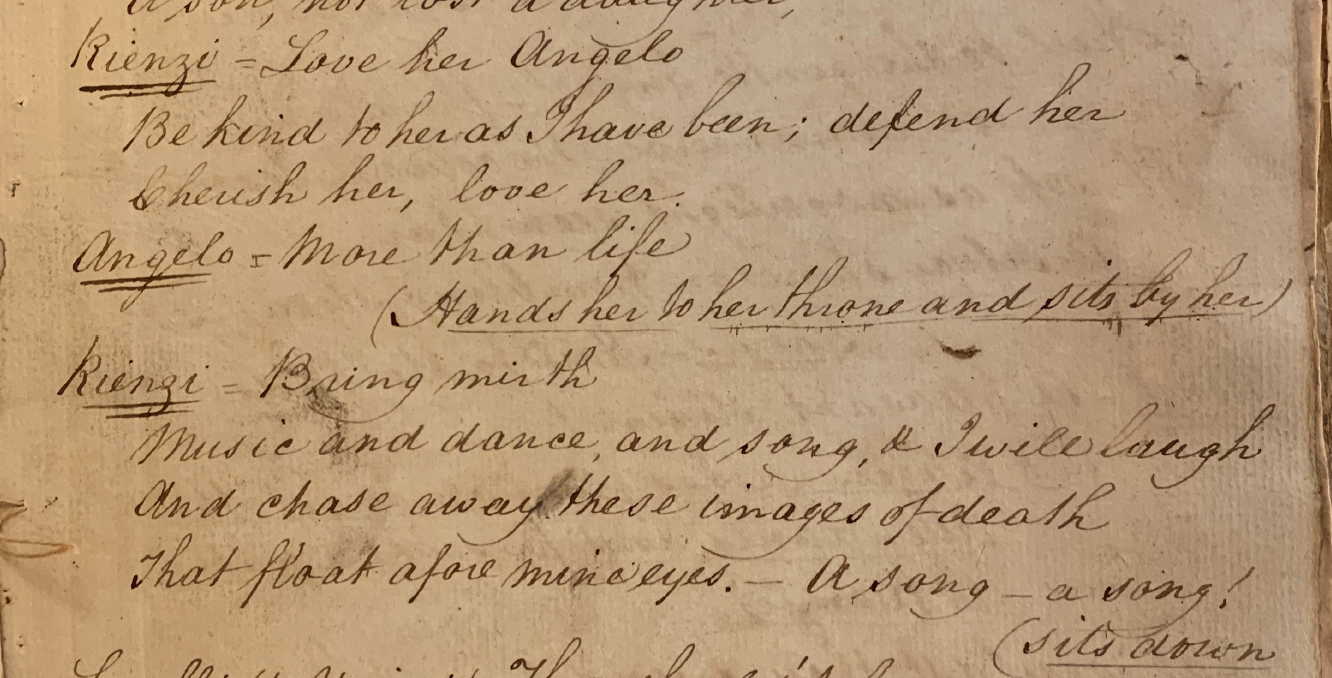 a son, not lost a daughter,
Rienzi = Love her Angelo
Be kind to her as I have been; defend her
Cherish her, love her.
Angelo = More than life
(Hands her to her throne and sits by her)
Rienzi = Bring mirth
Music and dance, and song, & I will laugh
And chase away these images of death
That float afore mine eyes. — A song — a song!
(sits down